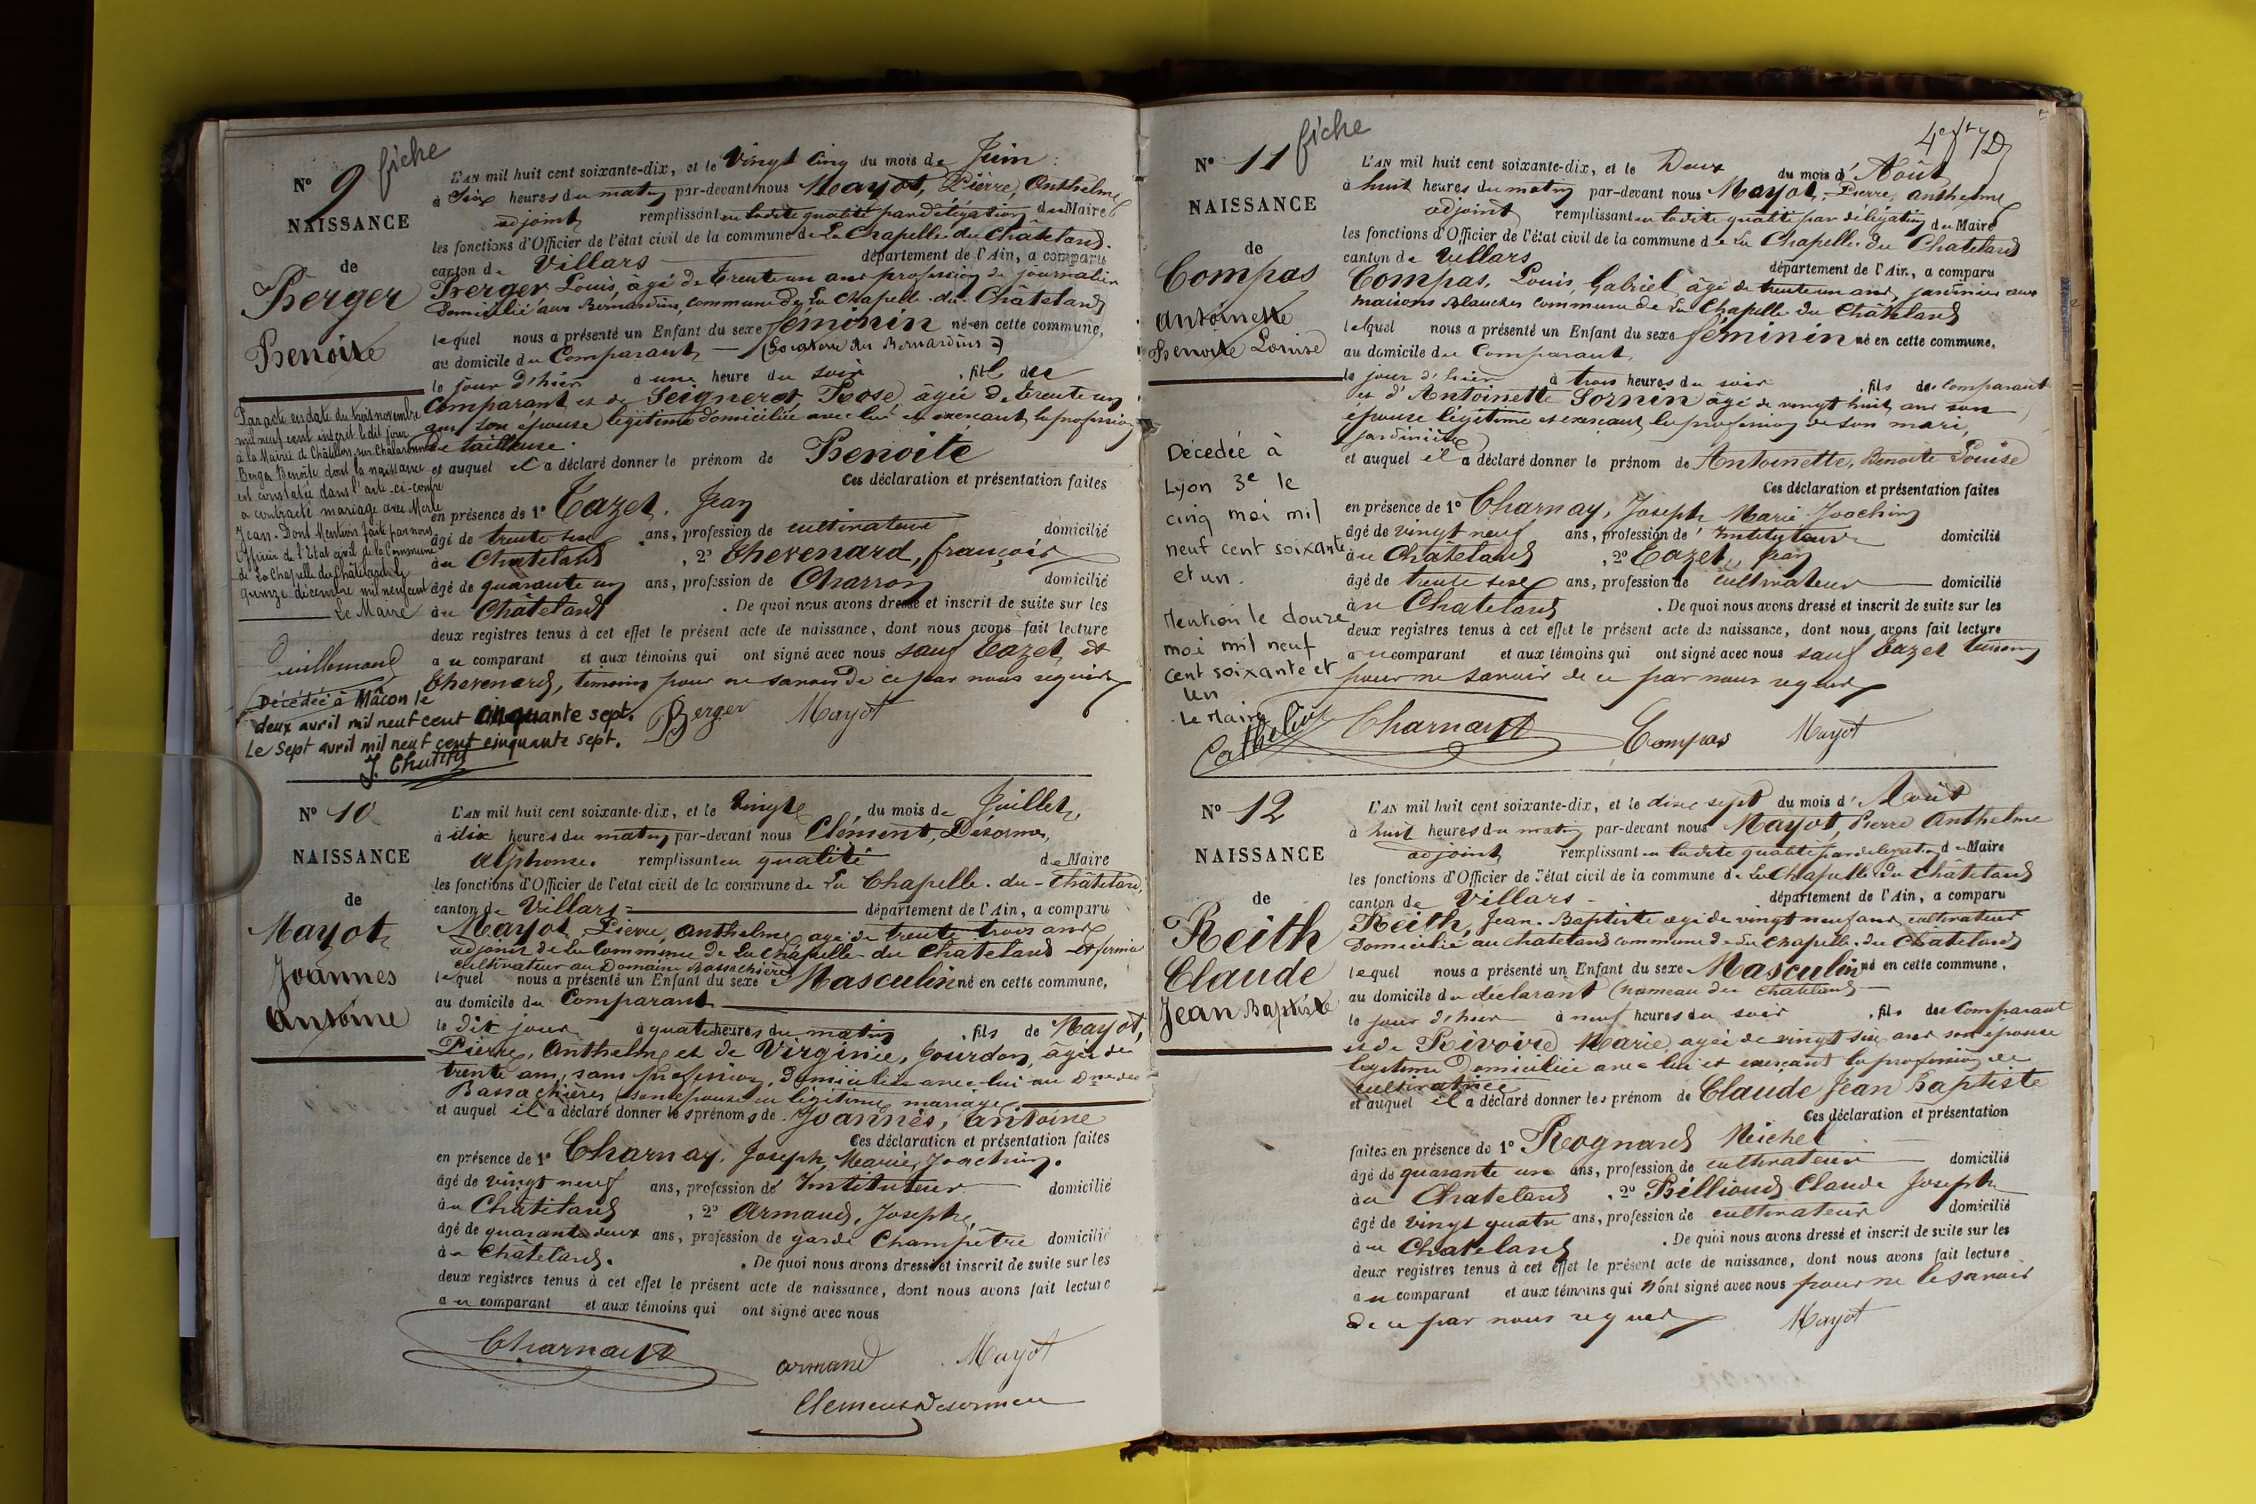 N° 9 fiche
NAISSANCE
de
Berger
Benoite
Par acte en date du trois novembre
mil neuf cent inscrit ledit jour
à la Mairie de Châtillon sur Chalaronne
Berger Benoîte dont la naissance
est constatée dans l'acte ci-contre
a contracté mariage avec Merle
Jean. Dont Mention faite par nous
Officier de l'Etat civil de la Commune
de La Chapelle du Châtelard le
quinze décembre mil neuf cent
Le Maire
Décédée à Mâcon le
deux avril mil neuf cent cinquante sept.
Le sept avril mil neuf cent cinquante sept.
L'AN mil huit cent soixante-dix, et le Vingt Cinq du mois de Juin
à Six heures du matin par-devant nous Mayot, Pierre, Anthelme
adjoint remplissant en ladite qualité par délégation du Maire
les fonctions d'Officier de l'état civil de la commune de La Chapelle du Châtelard.
canton de Villars département de l'Ain, a comparu
Berger Louis, âgé de trente un ans profession de journalier
Domicilié aux Bernardins, commune de La Chapelle du Châtelard
lequel nous a présenté un Enfant du sexe féminin né en cette commune,
au domicile du Comparant (Locaterie des Bernardins)
le jour d'hier à une heure du soir, fille du
Comparant et de Seignerot Rose âgée de trente un
ans son épouse légitime domiciliée avec lui et exerçant la profession
de tailleuse.
et auquel il a déclaré donner le prénom de Benoîte
Ces déclaration et présentation faites
en présence de 1° Cazet. Jean
âgé de trente six ans, profession de cultivateur domicilié
au Chatelard, 2° Thevenard, françois
âgé de quarante un ans, profession de Charron domicilié
au Châtelard. De quoi nous avons dressé et inscrit de suite sur les
deux registres tenus à cet effet le présent acte de naissance, dont nous avons fait lecture
au comparant et aux témoins qui ont signé avec nous sauf Cazet et
Thevenard, témoins pour ne savoir de ce par nous requis
Berger Mayot
N° 10
NAISSANCE
de
Mayot
Joannes
Antoine
L'AN mil huit cent soixante-dix, et le Vingt du mois de Juillet,
à dix heures du matin par-devant nous Clément, Désormes,
Alphonse. remplissant en qualité de Maire
les fonctions d'Officier de l'état civil de la commune de La Chapelle-du-Châtelard,
canton de Villars département de l'Ain, a comparu
Mayot Pierre, Anthelme, âgé de trente trois ans
adjoint de la Commune de La Chapelle du Chatelard et fermier
cultivateur au Domaine Bassachières
lequel nous a présenté un Enfant du sexe Masculin né en cette commune,
au domicile du Comparant
le dit jour à quatre heures du matin, fils de Mayot,
Pierre, Anthelme et de Virginie, Gourdon, âgée de
trente ans, sans profession, domiciliée avec lui au Dne des
Bassachières, son épouse en légitime mariage
et auquel il a déclaré donner les prénoms de Joannès, Antoine
Ces déclaration et présentation faites
en présence de 1° Charnay, Joseph, Marie, Joachim.
âgé de vingt neuf ans, profession de Instituteur domicilié
au Chatelard, 2° Armand, Joseph,
âgé de quarante deux ans, profession de garde Champêtre domicilié
à Châtelard. De quoi nous avons dressé et inscrit de suite sur les
deux registres tenus à cet effet le présent acte de naissance, dont nous avons fait lecture
au comparant et aux témoins qui ont signé avec nous
Charnay armand Mayot
Clement Desormes
4e ft
N° 11 fiche
NAISSANCE
de
Compas
Antoinette
Benoite Louise
Décédée à
Lyon 3e le
cinq mai mil
neuf cent soixante
et un.
Mention le douze
mai mil neuf
cent soixante et
un
Le Maire
L'AN mil huit cent soixante-dix, et le Deux du mois d'Août
à huit heures du matin par-devant nous Mayot, Pierre, Anthelme
adjoint remplissant en ladite qualité par délégation du Maire
les fonctions d'Officier de l'état civil de la commune de La Chapelle du Chatelard
canton de Villars département de l'Ain, a comparu
Compas, Louis, Gabriel, âgé de trente un ans, jardinier aux
maisons Blanches commune de La Chapelle du Châtelard
lequel nous a présenté un Enfant du sexe féminin né en cette commune,
au domicile du Comparant,
le jour d'hier à trois heures du soir, fils du Comparant
et d'Antoinette Sornin âgé de vingt huit ans son
épouse légitime et exerçant la profession de son mari,
(jardinière)
et auquel il a déclaré donner le prénom de Antoinette, Benoîte Louise
Ces déclaration et présentation faites
en présence de 1° Charnay, Joseph Marie Joachim
âgé de vingt neuf ans, profession d'Instituteur domicilié
au Châtelard, 2° Cazet, Jean
âgé de trente six ans, profession de cultivateur domicilié
au Chatelard. De quoi nous avons dressé et inscrit de suite sur les
deux registres tenus à cet effet le présent acte de naissance, dont nous avons fait lecture
au comparant et aux témoins qui ont signé avec nous sauf Cazet témoin
pour ne savoir de ce par nous requis
Charnay Compas Mayot
N° 12
NAISSANCE
de
Reith
Claude
Jean Baptiste
L'AN mil huit cent soixante-dix, et le dix sept du mois d'Août
à huit heures du matin par-devant nous Mayot, Pierre Anthelme
adjoint remplissant en ladite qualité par délégation du Maire
les fonctions d'Officier de l'état civil de la commune de La Chapelle du Châtelard
canton de Villars département de l'Ain, a comparu
Reith, Jean-Baptiste âgé de vingt neuf ans, cultivateur
Domicilié au chatelard commune de La Chapelle du Châtelard
lequel nous a présenté un Enfant du sexe Masculin né en cette commune,
au domicile du déclarant (hameau du Chatelard
le jour d'hier à neuf heures du soir, fils du Comparant
et de Rivoire Marie agée de vingt six ans son épouse
légitime domiciliée avec lui et exerçant la profession de
cultivatrice
et auquel il a déclaré donner les prénom de Claude Jean Baptiste
Ces déclaration et présentation
faites en présence de 1° Rognard Michel
âgé de quarante un ans, profession de cultivateur domicilié
au Chatelard, 2° Billioud Claude Joseph
âgé de vingt quatre ans, profession de cultivateur domicilié
au Chatelard. De quoi nous avons dressé et inscrit de suite sur les
deux registres tenus à cet effet le présent acte de naissance, dont nous avons fait lecture
au comparant et aux témoins qui n'ont signé avec nous pour ne le savoir
de ce par nous requis Mayot